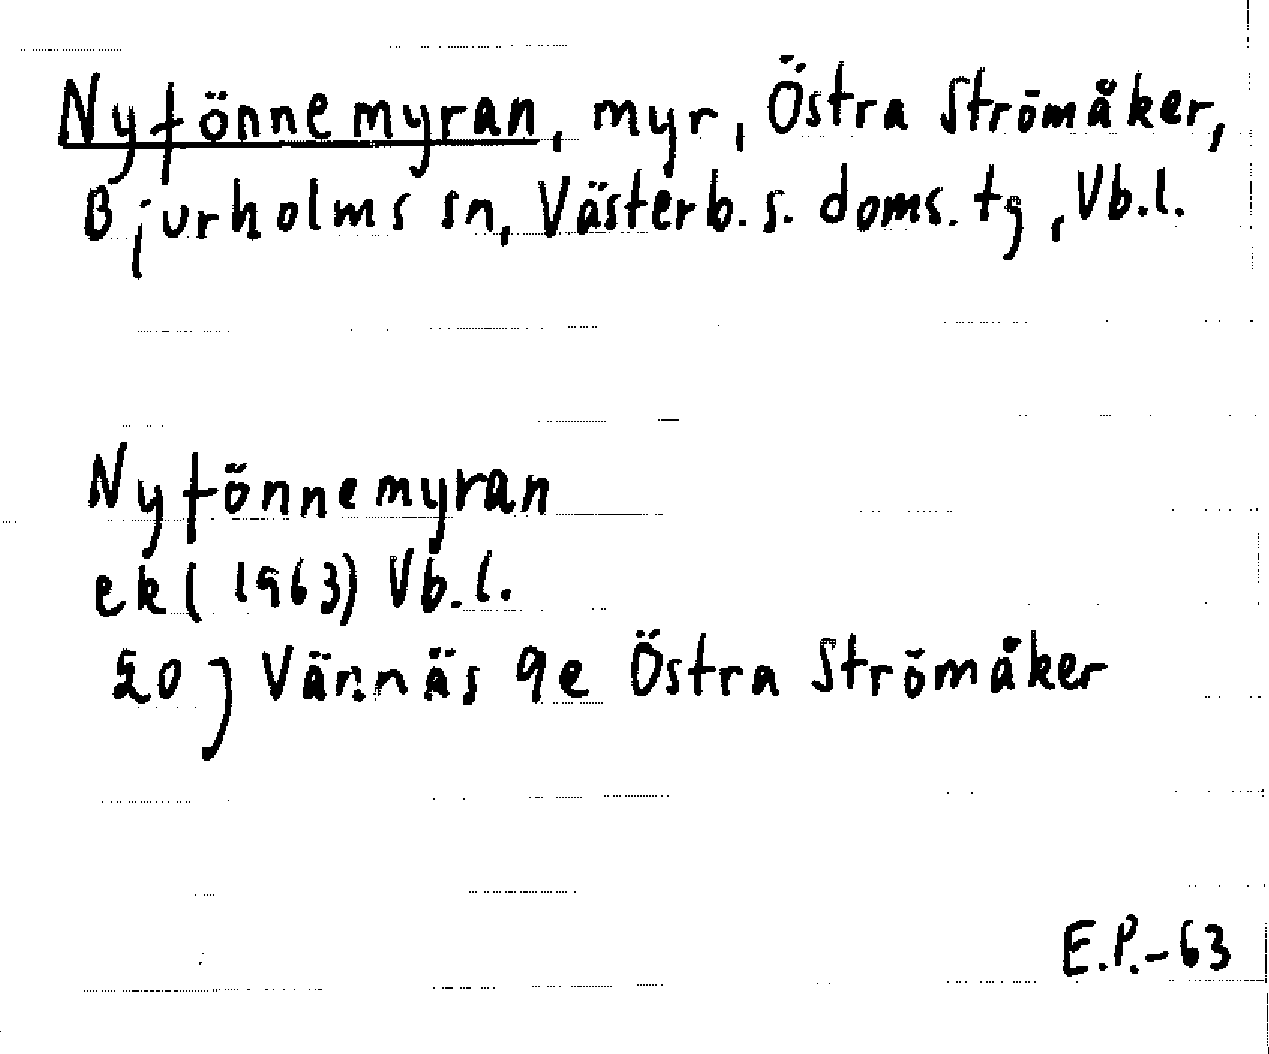 Nytönnemyran, myr, Östra Strömåker,
Bjurholms sn, Västerb. s. doms. tg, Vb. l.
Nytönnemyran
ek (1963) Vb. l.
20 J Vännäs 9e Östra Strömåker
E.P.-63